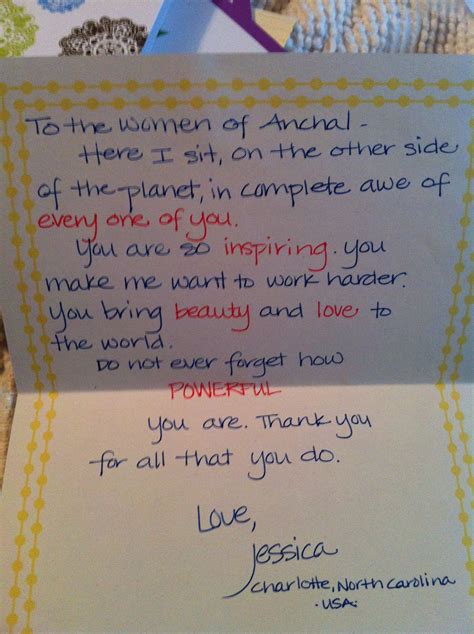 To the women of Anchal -
Here I sit, on the other side
of the planet, in complete awe of
every one of you.
You are so inspiring. you
make me want to work harder.
You bring beauty and love to
the world.
Do not ever forget how
POWERFUL
you are. Thank you
for all that you do.
Love,
Jessica
Charlotte, North Carolina
·USA·